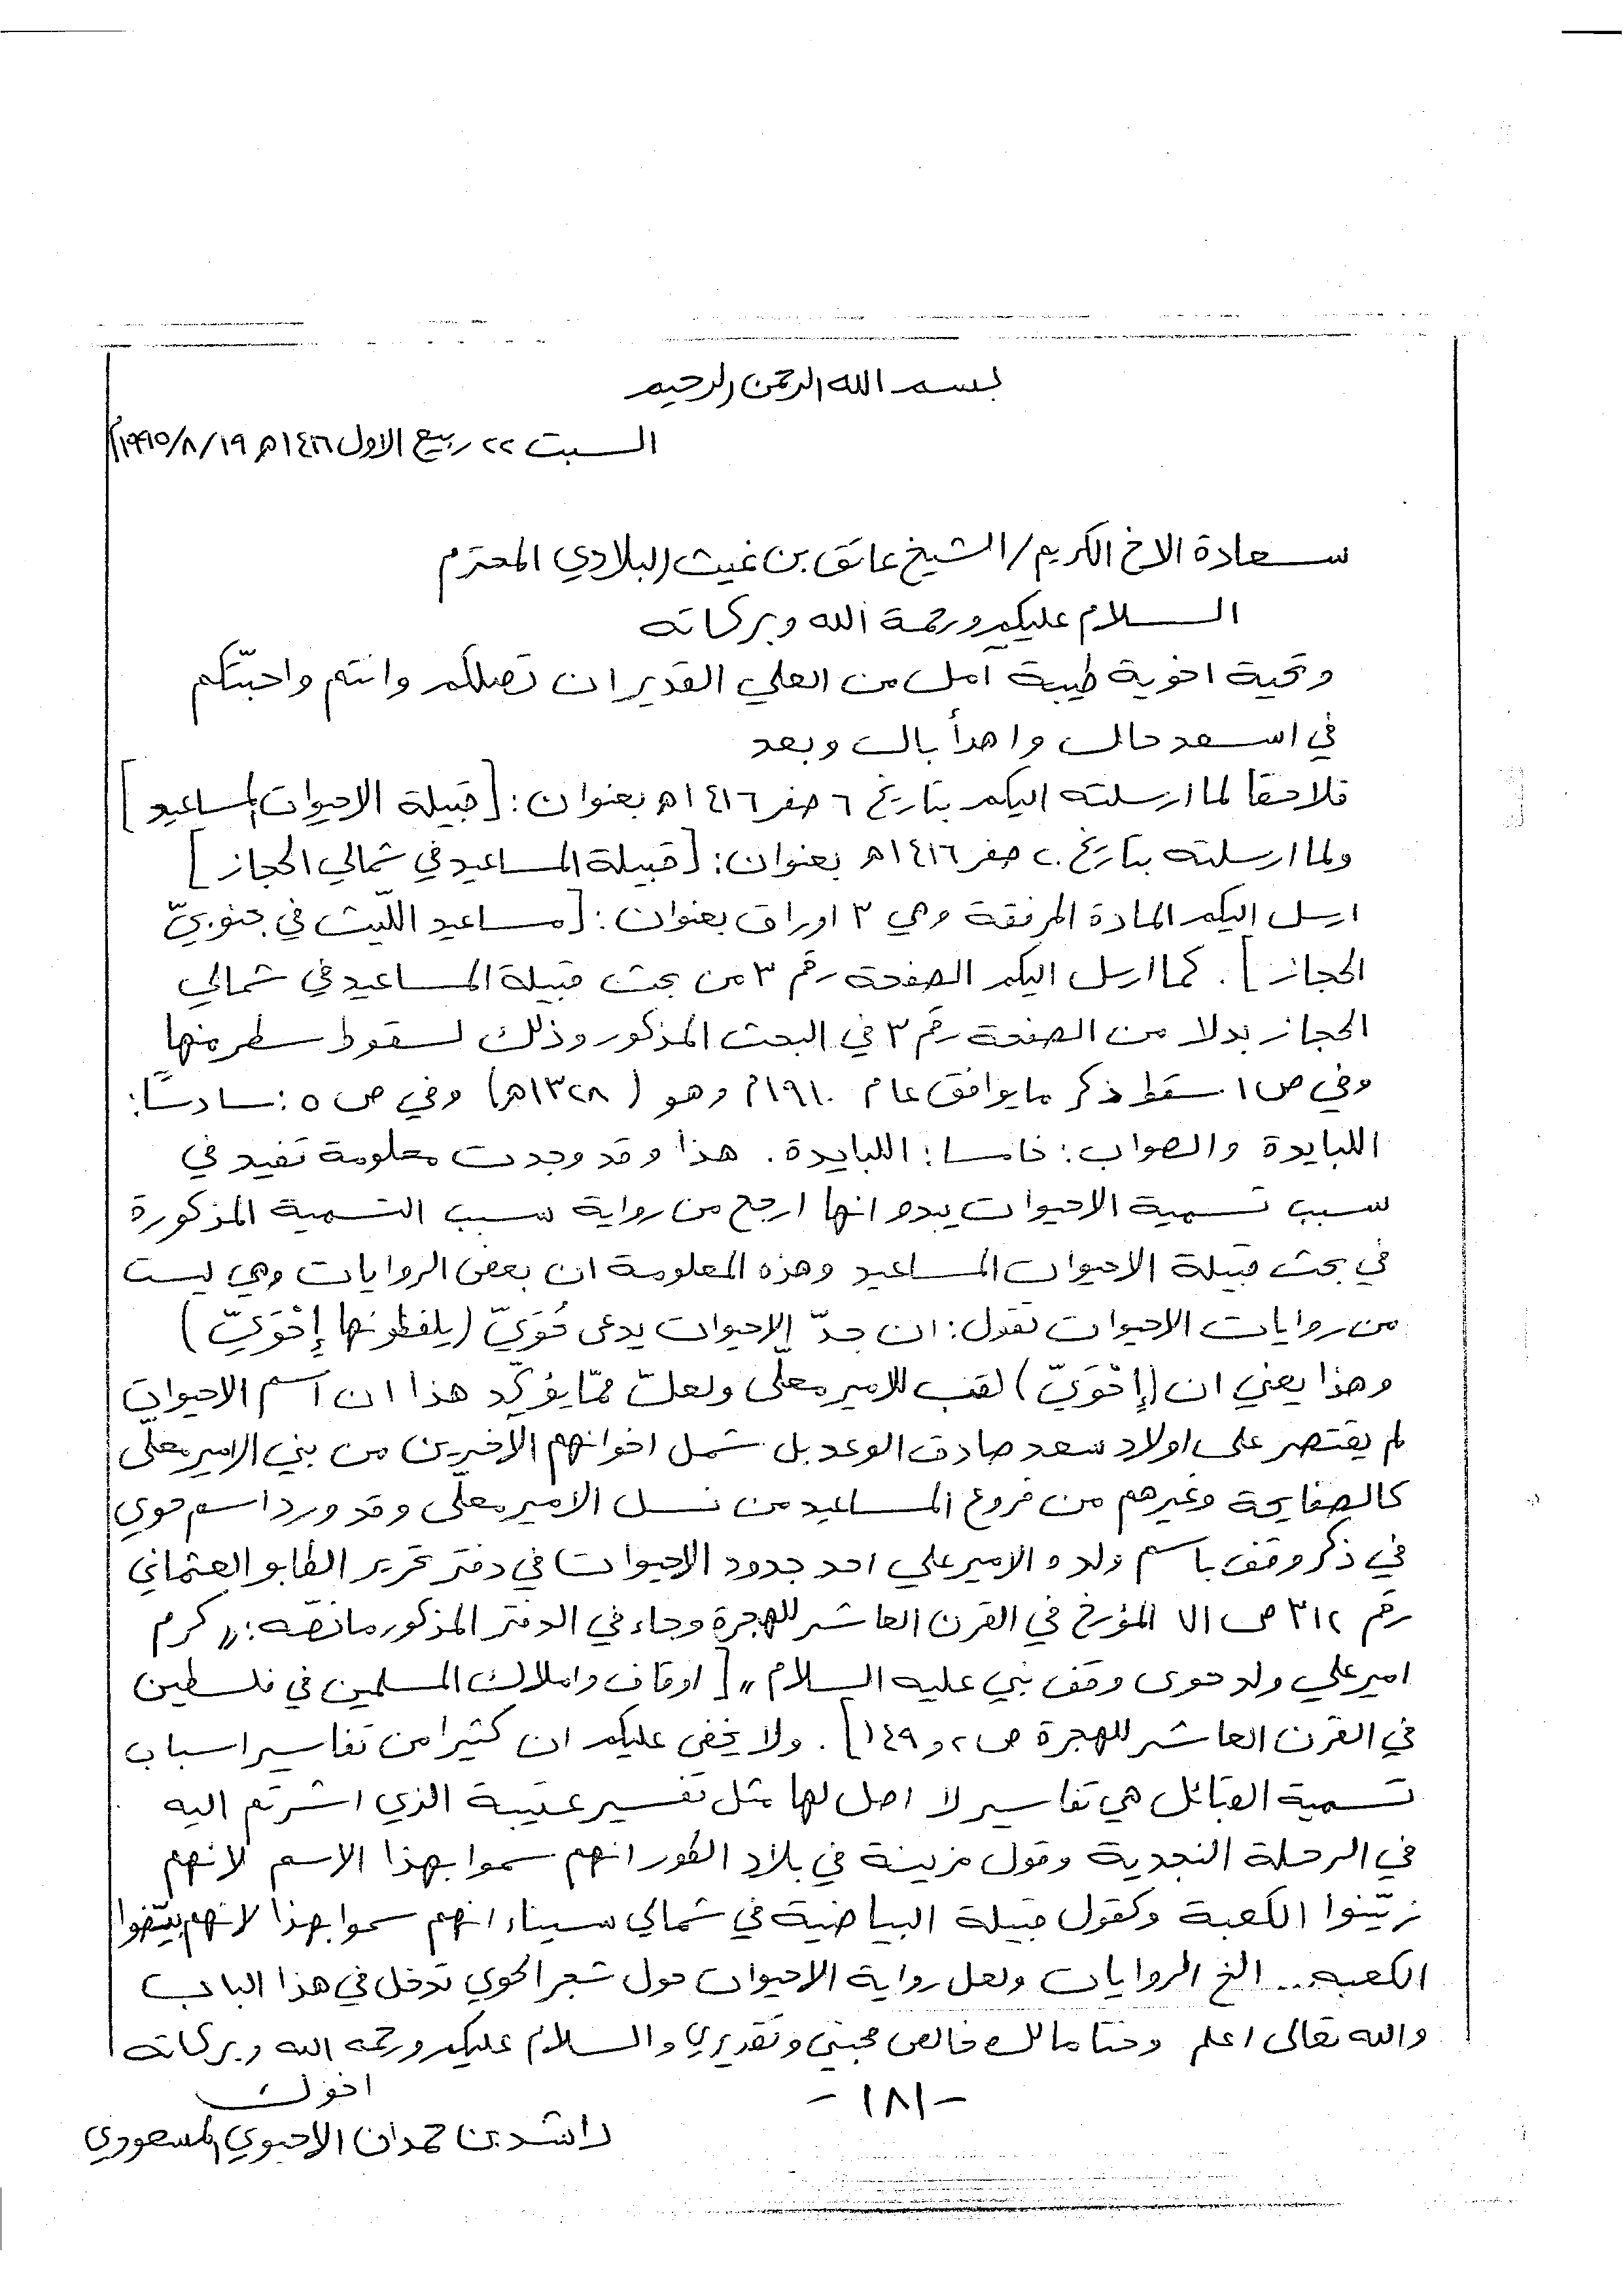 بسم الله الرحمن الرحيم
السبت ٢٢ ربيع الاول ١٤١٦هـ ١٩/٨/١٩٩٥م
سعادة الاخ الكريم / الشيخ عاتق بن غيث البلادي المحترم
السلام عليكم ورحمة الله وبركاته
وتحية اخوية طيبة آمل من العلي القدير ان تصلكم وانتم واحبّتكم
في اسعد حال واهدأ بال وبعد
فلاحقا لما ارسلته اليكم بتاريخ ٦ صفر ١٤١٦هـ بعنوان: [قبيلة الاحيوات المساعيد]
ولما ارسلته بتاريخ ٢٠ صفر ١٤١٦هـ بعنوان: [قبيلة المساعيد في شمالي الحجاز]
ارسل اليكم المادة المرفقة وهي ٣ اوراق بعنوان: [مساعيد اللّيث في جنوبيّ
الحجاز]. كما ارسل اليكم الصفحة رقم ٣ من بحث قبيلة المساعيد في شمالي
الحجاز بدلا من الصفحة رقم ٣ في البحث المذكور وذلك لسقوط سطر منها
وفي ص ١ سقط ذكر ما يوافق عام ١٩١٠م وهو (١٣٢٨هـ) وفي ص ٥: سادسًا:
اللبايدة والصواب: خامسا: اللبايدة. هذا وقد وجدت معلومة تفيد في
سبب تسمية الاحيوات يبدو انها ارجح من رواية سبب التسمية المذكورة
في بحث قبيلة الاحيوات المساعيد وهذه المعلومة ان بعض الروايات وهي ليست
من روايات الاحيوات تقول: ان جدّ الاحيوات يدعى حُوَيّ (يلفظونها إِحْوَيّ)
وهذا يعني ان (إِحْوَيّ) لقب للامير معلّى ولعلّ ممّا يؤكّد هذا ان اسم الاحيوات
لم يقتصر على اولاد سعد صادق الوعد بل شمل اخوانهم الآخرين من بني الامير معلّى
كالصفايحة وغيرهم من فروع المساعيد من نسل الامير معلّى وقد ورد اسم حوي
في ذكر وقف باسم ولده الامير علي احد جدود الاحيوات في دفتر تحرير الطابو العثماني
رقم ٣١٢ ص ١٧ المؤرخ في القرن العاشر للهجرة وجاء في الدفتر المذكور ما نصّه: "كرم
امير علي ولد حوى وقف نبي عليه السلام" [اوقاف واملاك المسلمين في فلسطين
في القرن العاشر للهجرة ص ٢ و ١٤٩]. ولا يخفى عليكم ان كثيرا من تفاسير اسباب
تسمية القبائل هي تفاسير لا اصل لها مثل تفسير عتيبة الذي اشرتم اليه
في الرحلة النجدية وقول مزينة في بلاد الطور انهم سموا بهذا الاسم لانهم
زيّنوا الكعبة وكقول قبيلة البياضية في شمالي سيناء انهم سموا بهذا لانهم بيّضوا
الكعبه... الخ الروايات ولعل رواية الاحيوات حول شجر الحوي تدخل في هذا الباب
والله تعالى اعلم وختاما لك خالص محبتي وتقديري والسلام عليكم ورحمة الله وبركاته
اخوك
راشد بن حمدان الاحيوي المسعودي
-١٨١-